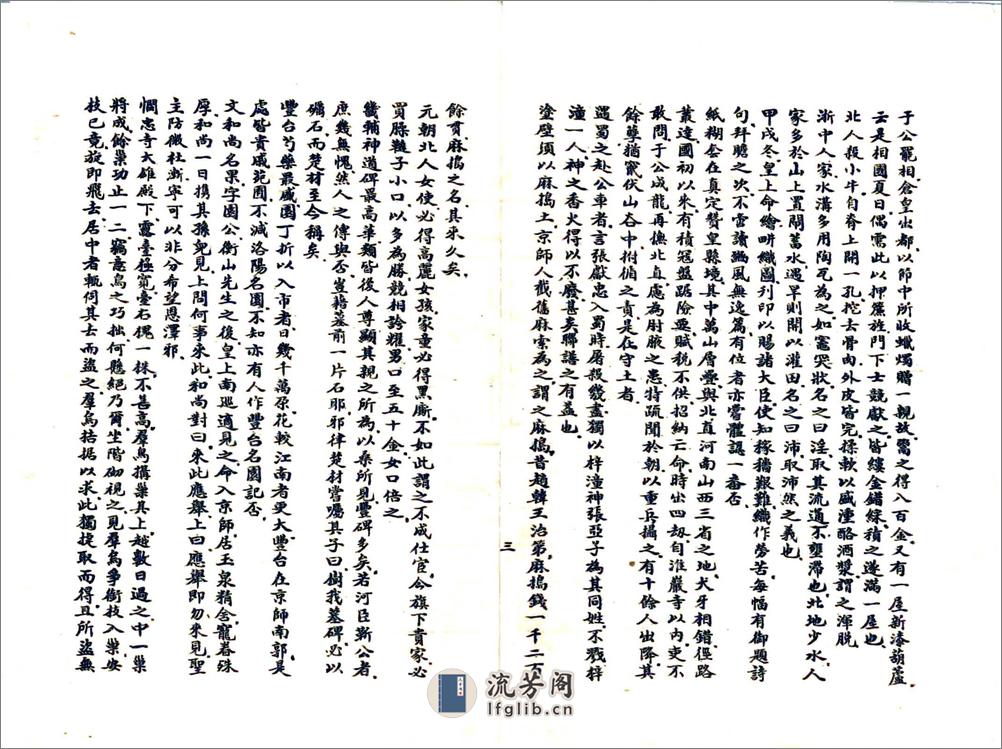 于公罷相倉皇出都以節中所收蠟燭贈一親故鬻之得八百金又有一屋新漆葫蘆
云是相國夏日偶需此以押簾旌門下士競獻之皆縷金錯綵積之遂滿一屋也
北人殺小牛自脊上開一孔挖去骨肉外皮皆完揉軟以盛湩酪酒漿謂之渾脫
浙中人家水溝多用陶瓦為之如竈突狀名之曰淫取其流通不壅滯也北地少水人
家多於山上置閘蓄水遇旱則開以灌田名之曰沛取沛然之義也
甲戌冬皇上命繪畊織圖列印以賜諸大臣使知稼穡艱難織作勞苦每幅有御題詩
句拜瞻之次不啻讀豳風無逸篇有位者亦嘗體認一番否
紙糊套在真定贊皇縣境其中萬山層疊與北直河南山西三省之地犬牙相錯徑路
叢達國初以來有積寇盤踞險要賦稅不供招納亡命時出四刼自淮嚴寺以內吏不
敢問于公成龍再撫北直慮為肘腋之患特疏聞於朝以重兵攝之有十餘人出降其
餘孽猶竄伏山谷中拊循之責是在守土者
遇蜀之赴公車者言張獻忠入蜀時屠殺幾盡獨以梓潼神張亞子為其同姓不戮梓
潼一人神之香火得以不廢甚矣聯譜之有益也
塗壁須以麻搗土京師人截舊麻索為之謂之麻搗昔趙韓王治第麻搗錢一千二百
三
餘貫麻搗之名其來久矣
元朝北人女使必得高麗女孩家童必得黑廝不如此謂之不成仕宦今旗下貴家必
買臊韃子小口以多為勝競相誇耀男口至五十金女口倍之
畿輔神道碑最高華類皆後人尊顯其親之所為以余所見豐碑多矣若河臣靳公者
庶幾無愧然人之傳與否豈藉墓前一片石耶耶律楚材嘗囑其子曰樹我墓碑必以
礪石而楚材至今稱矣
豐台芍藥最盛園丁折以入市者日幾千萬朶花較江南者更大豐台在京師南郭是
處皆貴戚苑囿不減洛陽名園不知亦有人作豐台名園記否
文和尚名果字園公衡山先生之後皇上南巡適見之命入京師居玉泉精舍寵眷殊
厚和尚一日携其孫兒見上問何事來此和尚對曰來此應舉上曰應舉即勿來見聖
主防微杜漸寧可以非分希望恩澤邪
憫忠寺大雄殿下露臺極寬臺右槐一株不甚高羣鳥搆巢其上越數日過之中一巢
將成餘巢功止一二竊意鳥之巧拙何懸絕乃爾坐階御視之見羣鳥爭銜技入巢安
技已竟旋即飛去居中者輒伺其去而盜之羣鳥拮据以求此獨掟取而得且所盜無
流芳阁
lfglib.cn